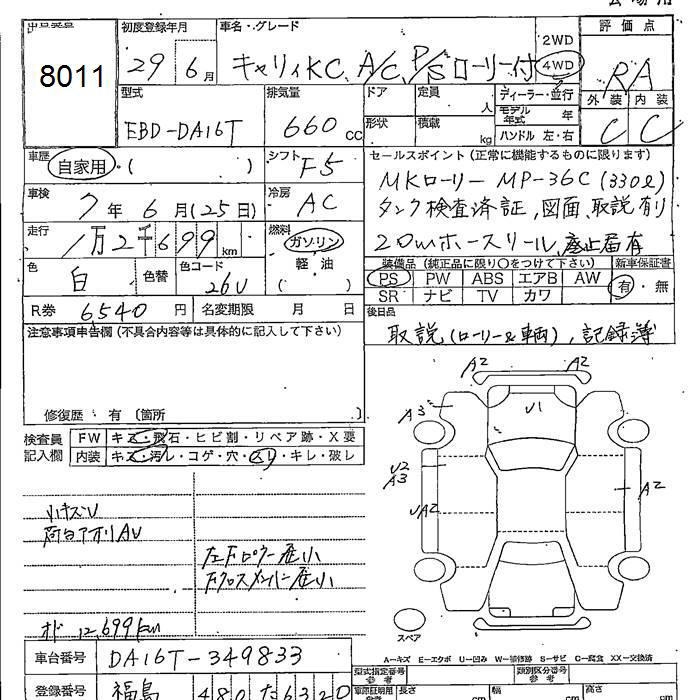 出品番号
8011
初度登録年月
29年6月
車名・グレード
キャリィKC、A/C P/S ローリー付
2WD
4WD
評価点
RA
外装 内装
C C
型式
EBD-DA16T
排気量
660cc
ドア
形状
定員 人
積載 kg
ディーラー・並行
モデル年式 年
ハンドル 左・右
車歴
自家用・( )
シフト
F5
車検
7年6月(25日)
冷房
AC
走行
1万2千699km
燃料
ガソリン
軽・油
( )
色
白
色替
色コード
26U
R券 6,540円
名変期限 月 日
セールスポイント(正常に機能するものに限ります)
MKローリー MP-36C(330ℓ)
タンク検査済証,図面,取説有り
20mホースリール,廃止届有
装備品(純正品に限り○をつけて下さい)
PS PW ABS エアB AW
SR ナビ TV カワ
新車保証書
有・無
後日品
取説(ローリー&車輌),記録簿
注意事項申告欄(不具合内容等は具体的に記入して下さい)
修復歴・有〔箇所 〕
検査員記入欄
FW キズ・飛石・ヒビ割・リペア跡・X要
内装 キズ・汚レ・コゲ・穴・スレ・キレ・破レ
小キズU
荷台アオリAU
左Fロワー歪小
Fクロスメンバー歪小
オド 12,699km
A2
A2
A3
U1
U2
A3
UA2
A2
スペア
A-キズ E-エクボ U-凹み W-補修跡 S-サビ C-腐食 XX-交換済
車台番号 DA16T-349833
登録番号 福島 480 た6320
型式指定番号
参考
類別区分番号
参考
車庫証明用
参考
長さ cm
幅 cm
高さ cm